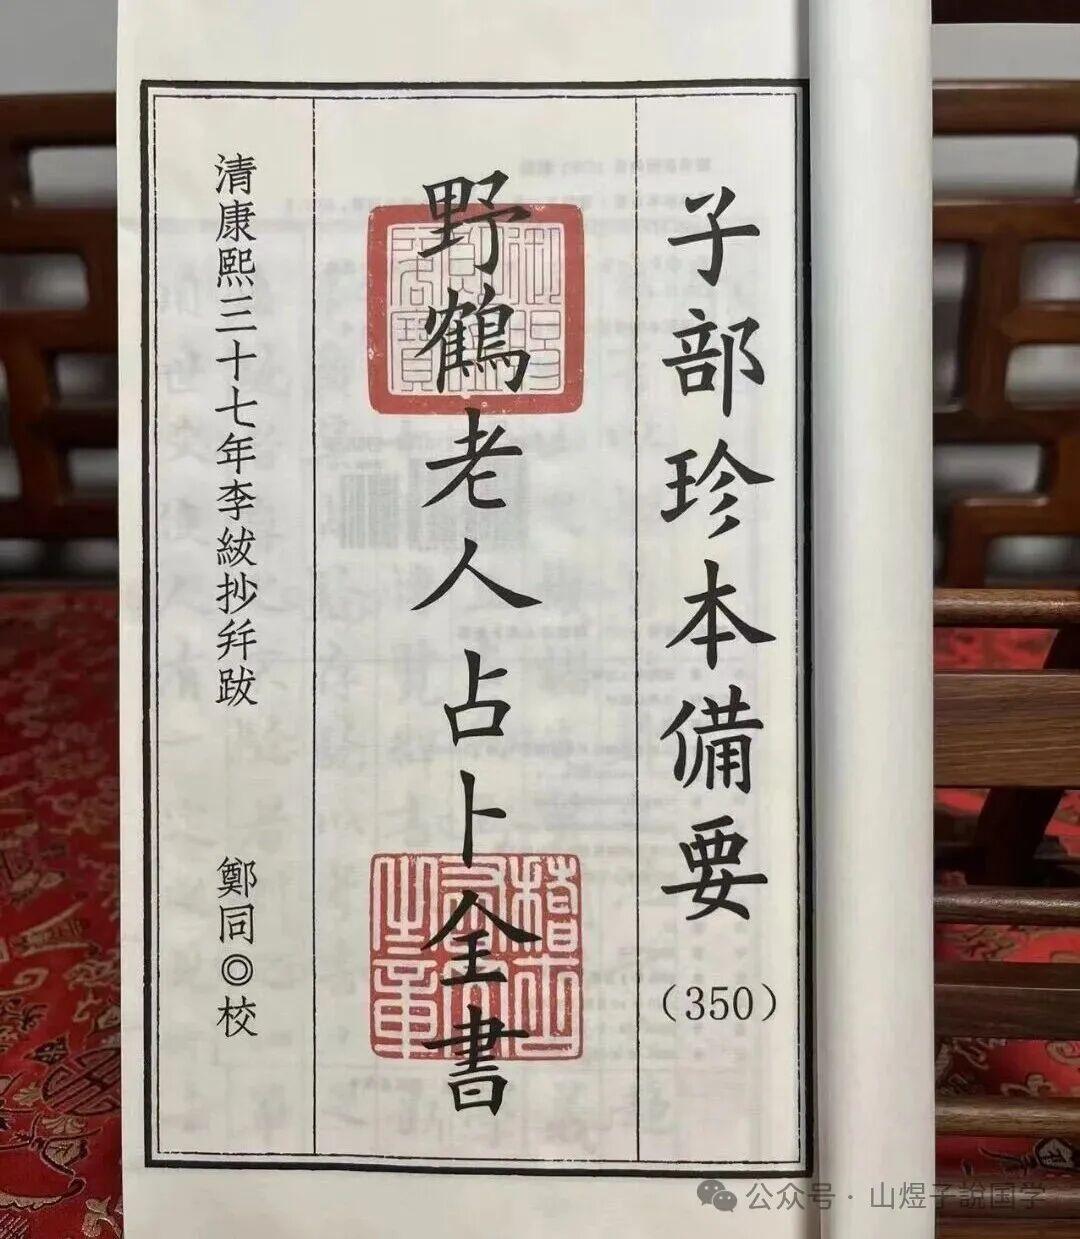 子部珍本備要
（350）
野鶴老人占卜全書
清康熙三十七年李紱抄幷跋
鄭同◎校
公众号 · 山煜子說国学